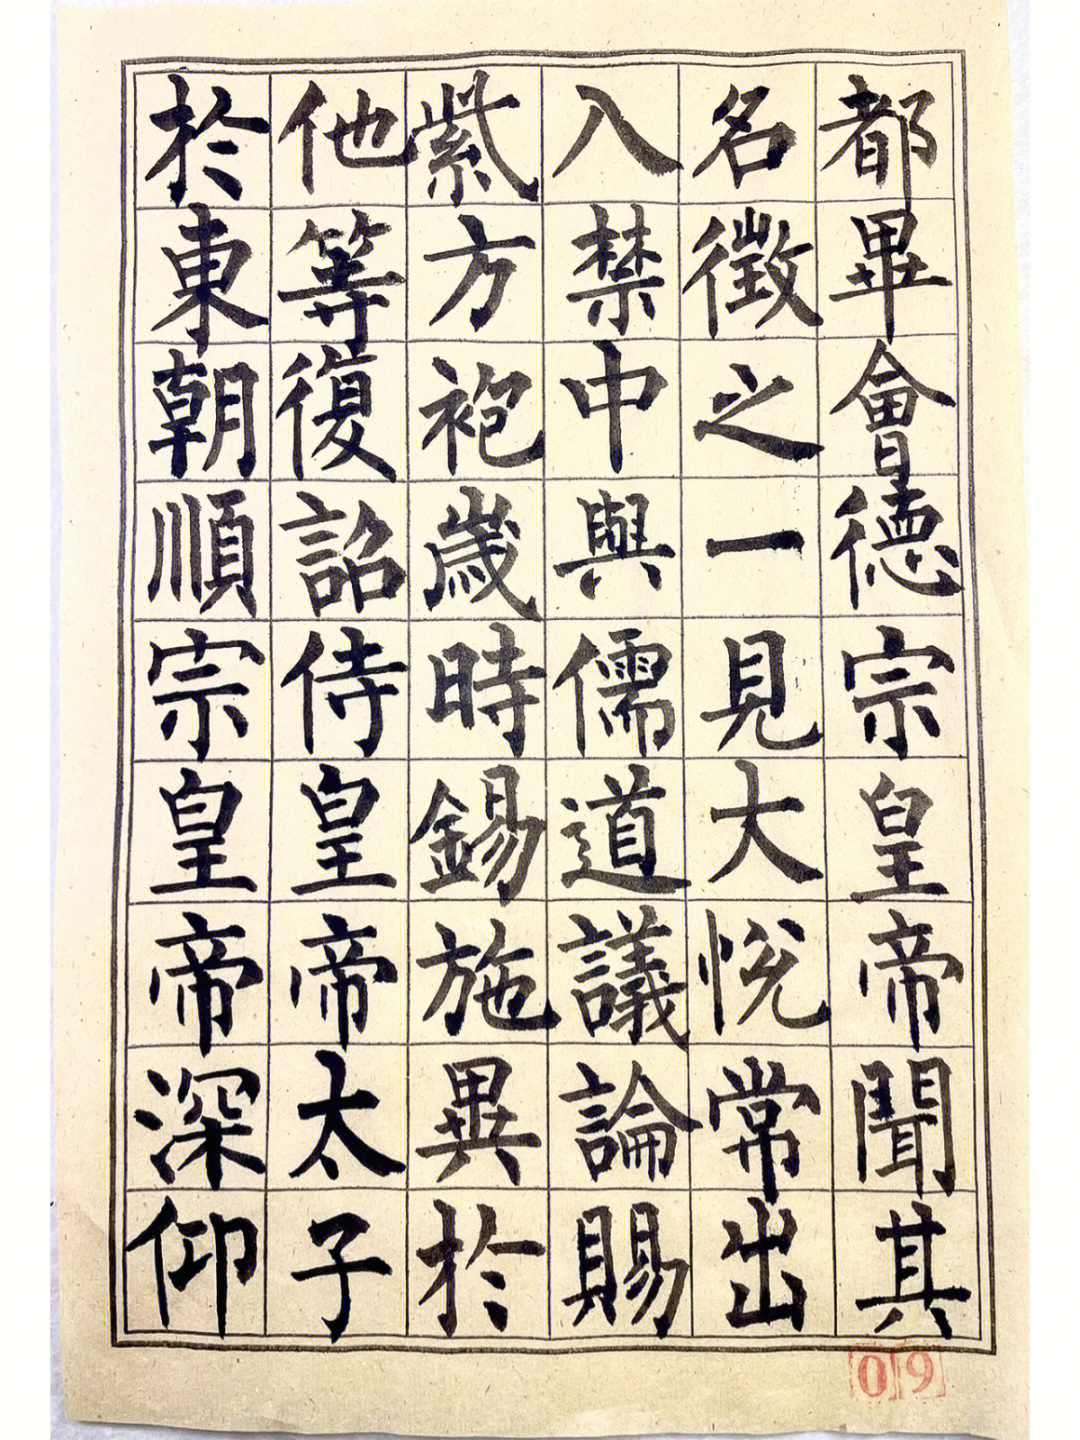 都畢會德宗皇帝聞其
名徵之一見大悅常出
入禁中與儒道議論賜
紫方袍歲時錫施異於
他等復詔侍皇帝太子
於東朝順宗皇帝深仰
09